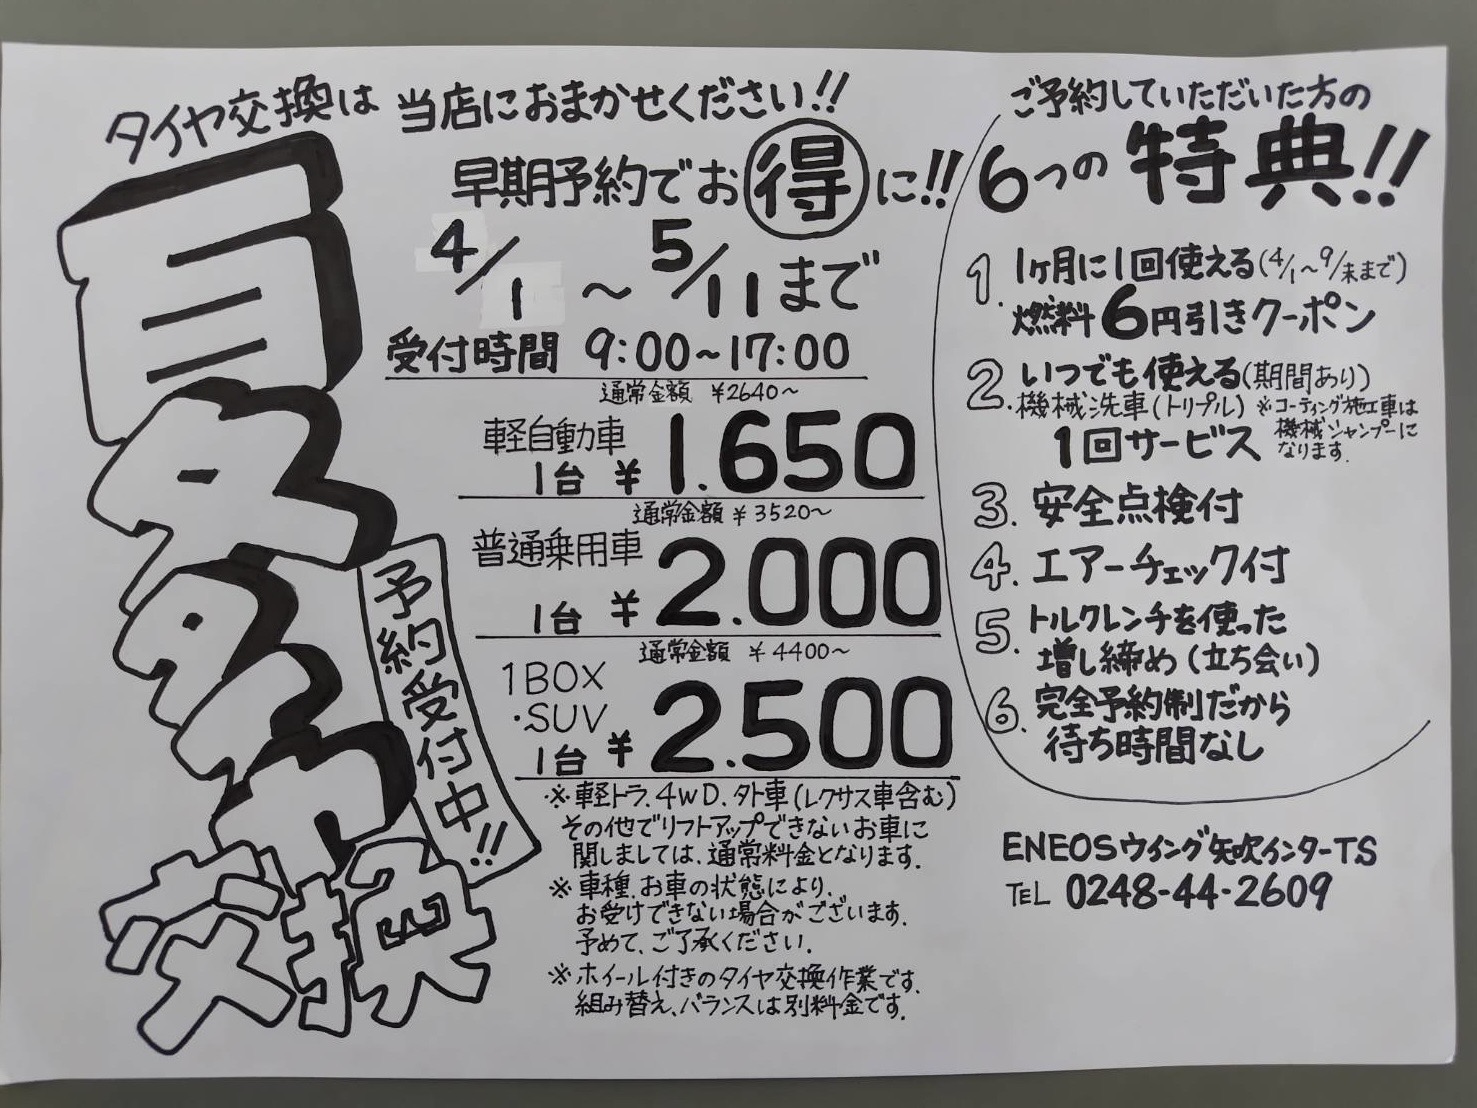 タイヤ交換は 当店におまかせください!!
早期予約でお得に!!
4/1～5/11まで
受付時間 9:00～17:00
夏タイヤ交換
予約受付中!!
通常金額 ¥2640～
軽自動車
1台 ¥1.650
通常金額 ¥3520～
普通乗用車
1台 ¥2.000
通常金額 ¥4400～
1BOX
・SUV
1台 ¥2.500
※軽トラ、4WD、外車(レクサス車含む)
その他でリフトアップできないお車に
関しましては、通常料金となります。
※車種、お車の状態により、
お受けできない場合がございます。
予めて、ご了承ください。
※ホイール付きのタイヤ交換作業です。
組み替え、バランスは別料金です。
ご予約していただいた方の
6つの特典!!
1. 1ヶ月に1回使える(4/1～9/末まで)
燃料6円引きクーポン
2. いつでも使える(期間あり)
機械洗車(トリプル) ※コーティング施工車は
機械シャンプーに
なります。
1回サービス
3. 安全点検付
4. エアーチェック付
5. トルクレンチを使った
増し締め(立ち会い)
6. 完全予約制だから
待ち時間なし
ENEOSウイング矢吹インターTS
TEL 0248-44-2609